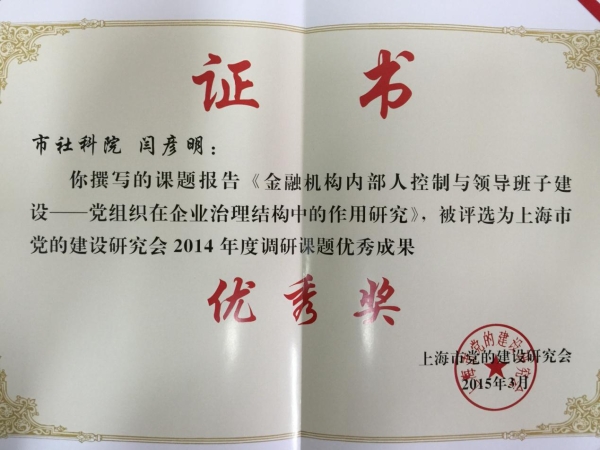 证书
市社科院 闫彦明：
你撰写的课题报告《金融机构内部人控制与领导班子建
设——党组织在企业治理结构中的作用研究》，被评选为上海市
党的建设研究会2014年度调研课题优秀成果
优秀奖
上海市党的建设研究会
2015年3月